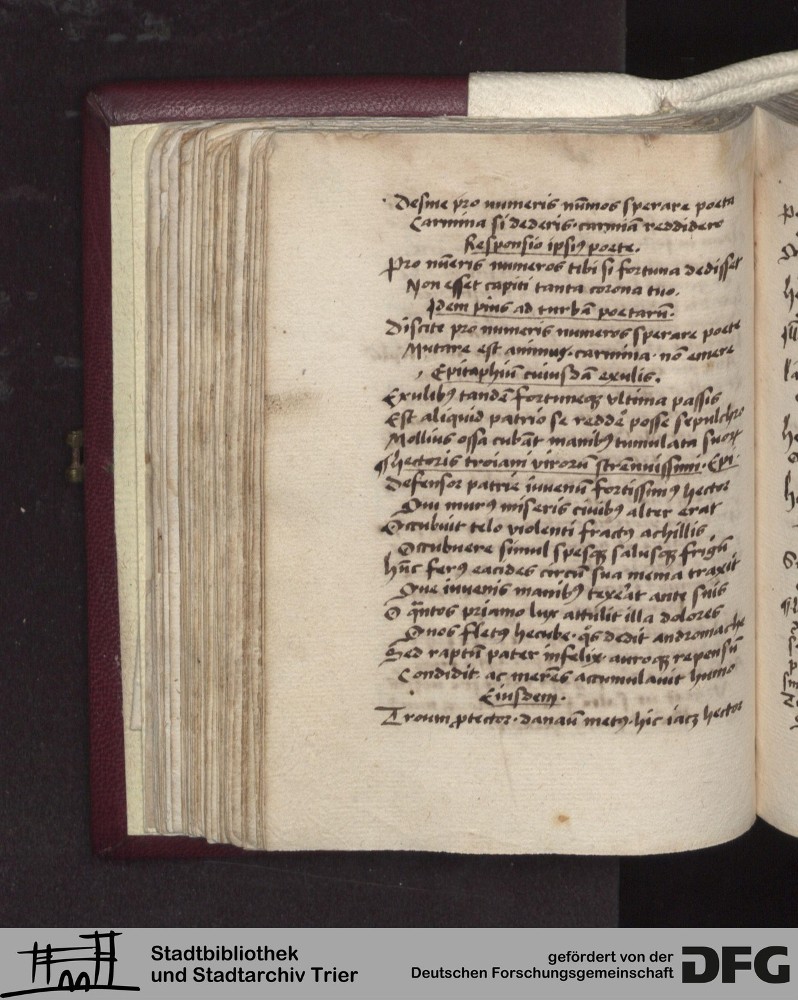 Desine pro numeris nūmos sperare poeta
Carmina si dederis carmīa reddidere
Responsio ipsiꝰ poete.
Pro nūeris numeros tibi si fortuna dedisset
Non esset capiti tanta corona tuo.
Idem pius ad turbā poetarū.
Discite pro numeris numeros sperare poete
Mutare est animus carmina nō emere
Epitaphiū cuiusdā exulis.
Exulibꝰ tandē fortuneqꝫ ultima passis
Est aliquid patrio se reddē posse sepulchro
Mollius ossa cubāt manibꝰ tumulata suoꝝ
¶ hectoris troiani virorū strenuissimi Epi.
Defensor patrie iuvenū fortissimꝰ hector
Qui murꝰ miseris civibꝰ alter erat
Occubuit telo violenti fractꝰ achillis
Occubuere simul spesqꝫ salusqꝫ frigū
hūc ferꝰ eacides circū sua menia traxit
Que iuvenis manibꝰ texerat ante suis
O quātos priamo lux attulit illa dolores
Quos fletꝰ hecube qͦs dedit andromache
Sed raptū pater infelix auroqꝫ repensū
Condidit ac merēs accumulavit humo
Eiusdem.
Troum ꝓtector danaū metꝰ hic iacꝫ hector
Stadtbibliothek
und Stadtarchiv Trier
gefördert von der
Deutschen Forschungsgemeinschaft
DFG